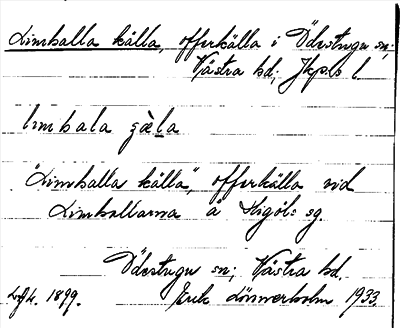 Limhalla källa, offerkälla i Ödestugu sn;
Västra hd; Jkp.s l
limhala sæ̀la
"Limhalla källa", offerkälla vid
Limhallarna å Stigöls sg.
Ödestugu sn; Västra hd.
1899. Erik Lönnerholm 1933.